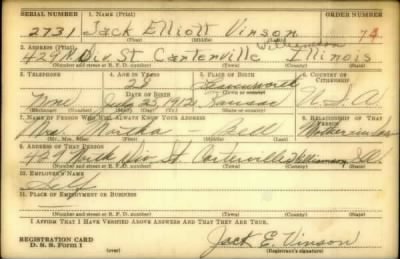 SERIAL NUMBER 1. NAME (Print) ORDER NUMBER
2731 Jack Elliott Vinson 74
(First) (Middle) (Last)
2. ADDRESS (Print) Williamson
429 N Div St Carterville Illinois
(Number and street or R. F. D. number) (Town) (County) (State)
3. TELEPHONE 4. AGE IN YEARS 5. PLACE OF BIRTH 6. COUNTRY OF CITIZENSHIP
28 Leavenworth
DATE OF BIRTH (Town or county)
None July 23, 1912 Kansas U.S.A.
(Exchange) (Number) (Mo.) (Day) (Yr.) (State or country)
7. NAME OF PERSON WHO WILL ALWAYS KNOW YOUR ADDRESS 8. RELATIONSHIP OF THAT PERSON
Mrs. Martha - Bell Mother in Law
(Mr., Mrs., Miss) (First) (Middle) (Last)
9. ADDRESS OF THAT PERSON
429 North Div St. Carterville Williamson, Ill.
(Number and street or R. F. D. number) (Town) (County) (State)
10. EMPLOYER'S NAME
Self
11. PLACE OF EMPLOYMENT OR BUSINESS
(Number and street or R. F. D. number) (Town) (County) (State)
I AFFIRM THAT I HAVE VERIFIED ABOVE ANSWERS AND THAT THEY ARE TRUE.
REGISTRATION CARD
D. S. S. Form 1 (over) Jack E. Vinson
(Registrant's signature)